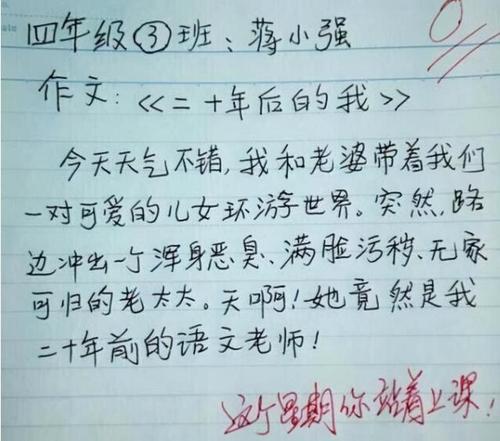 四年级③班：蒋小强
作文：<<二十年后的我>>
今天天气不错，我和老婆带着我们
一对可爱的儿女环游世界。突然，路
边冲出一个浑身恶臭、满脸污秽、无家
可归的老太太。天啊！她竟然是我
二十年前的语文老师！
0
这个星期你站着上课！